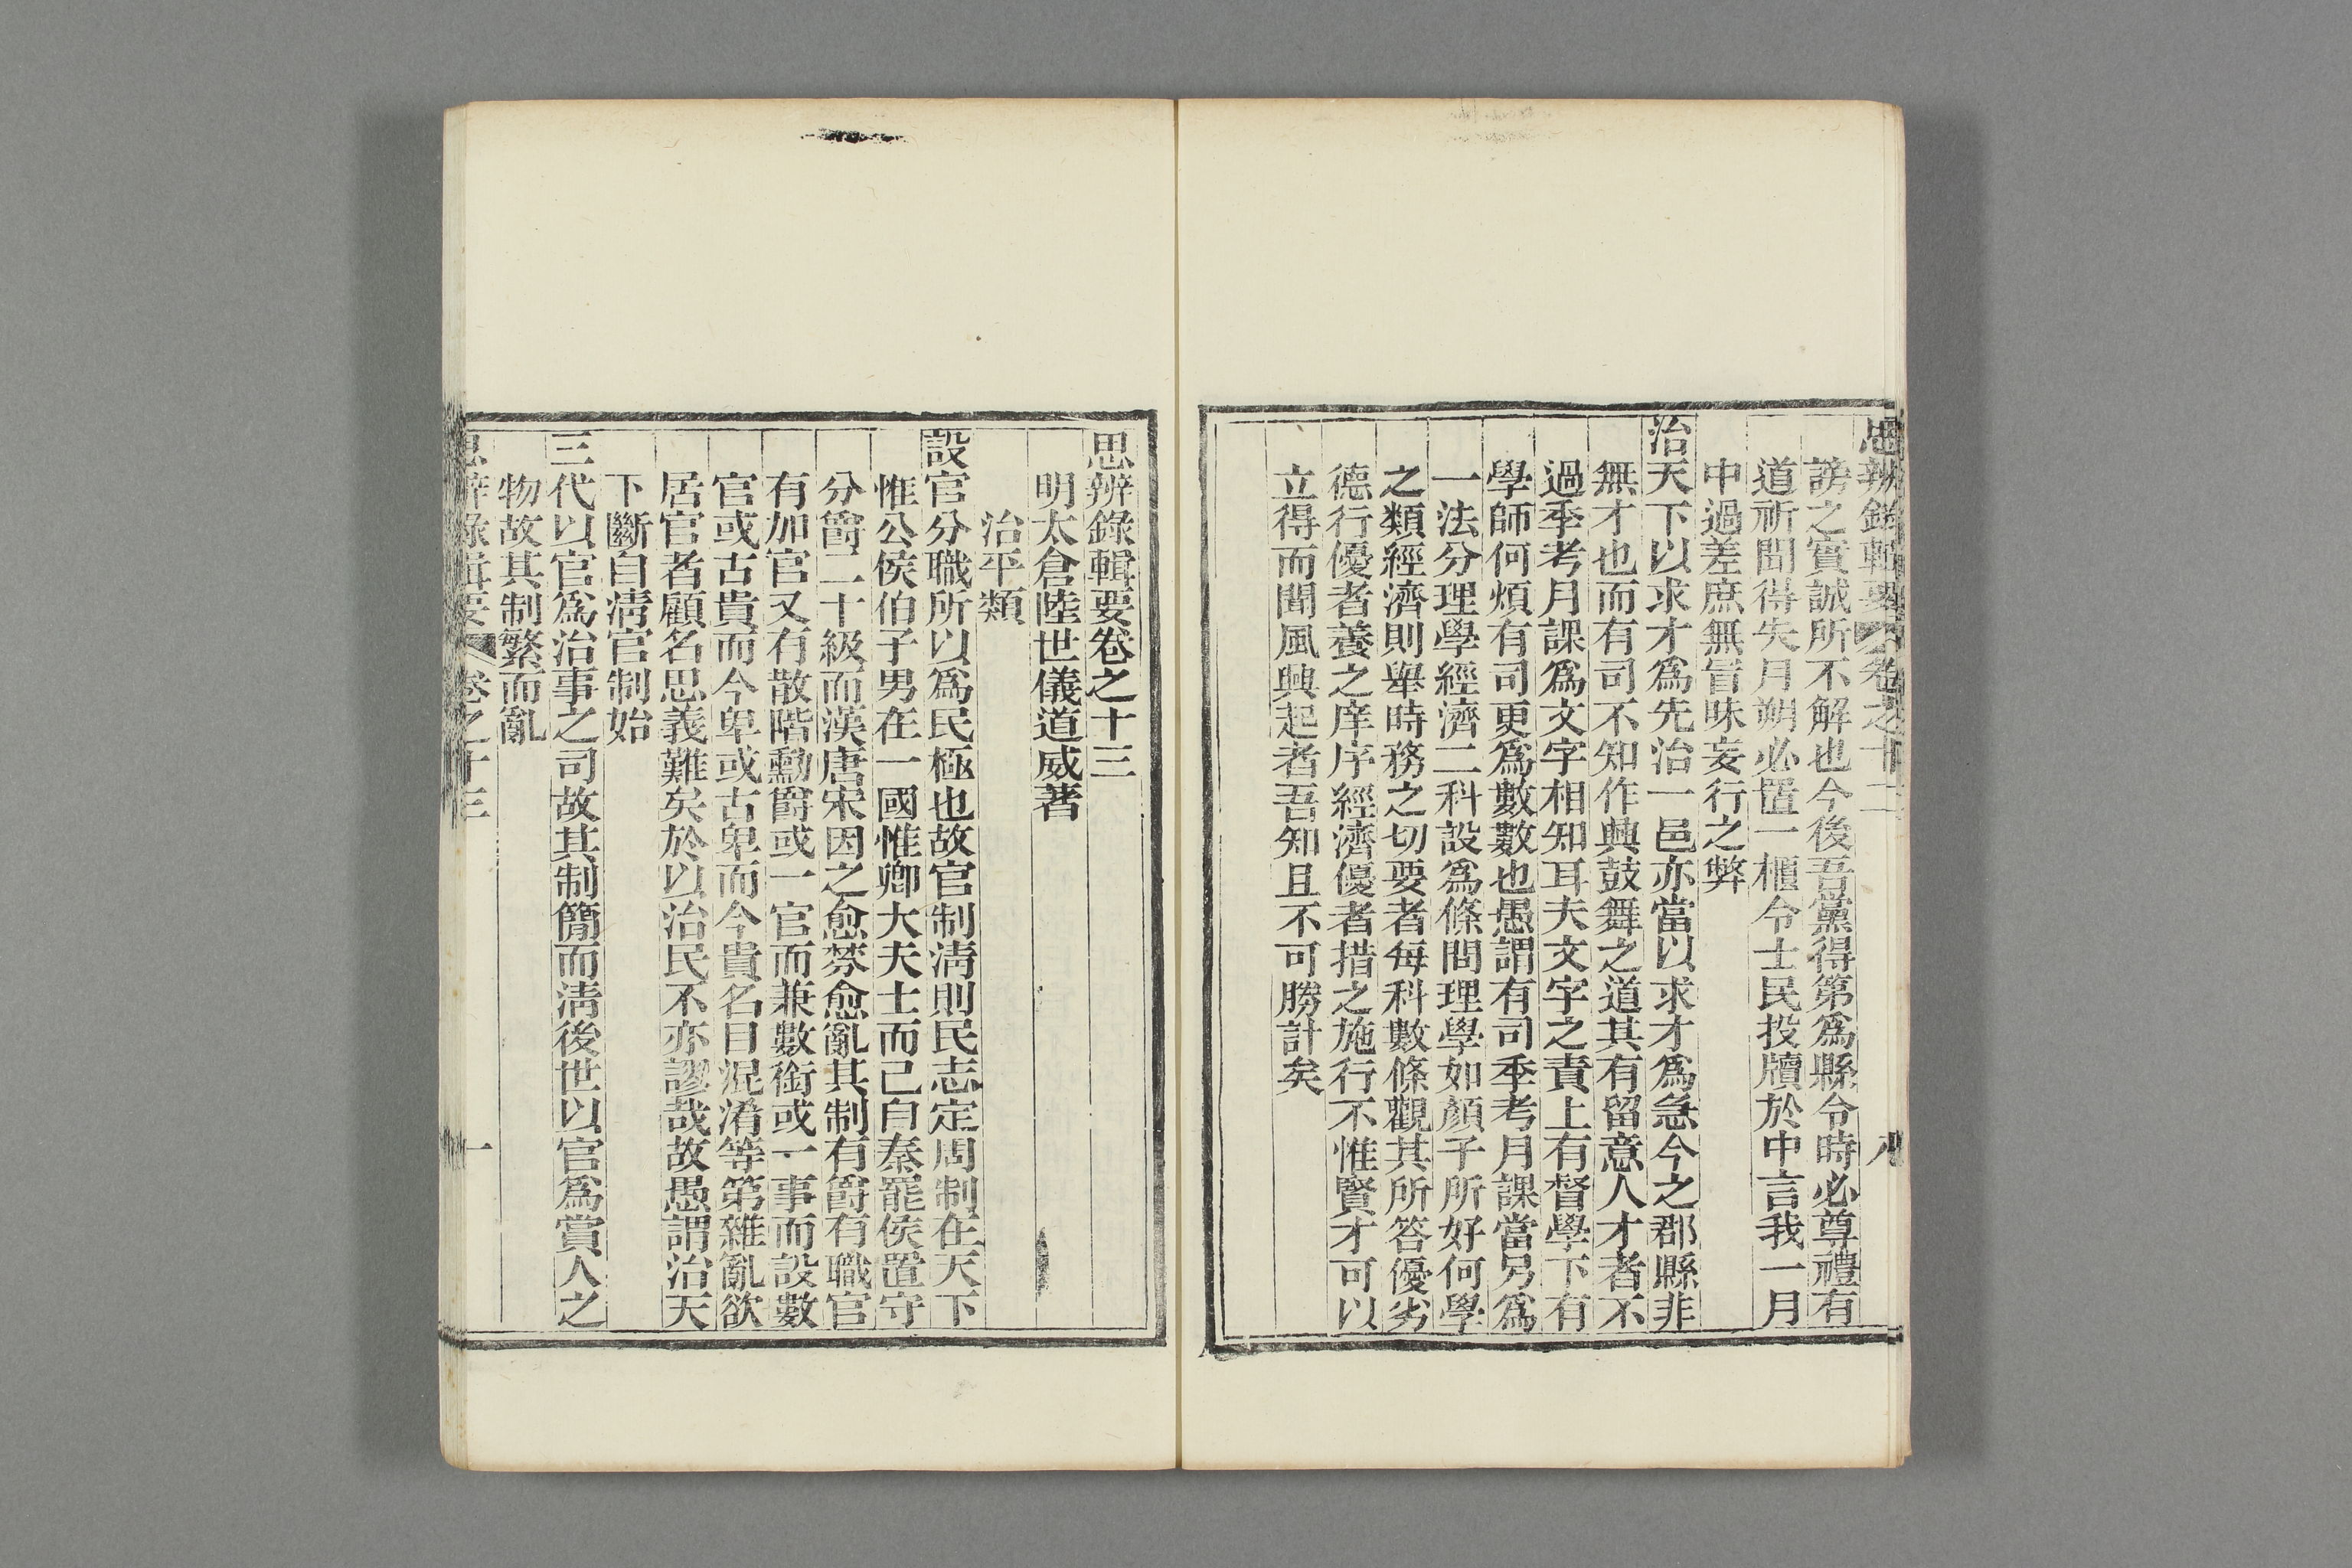 思辨錄輯要 卷之十二 八
謗之實誠所不解也今後吾黨得第爲縣令時必尊禮有
道祈聞得失月朔必置一櫃令士民投牘於中言我一月
中過差庶無冒昧妄行之弊
治天下以求才爲先治一邑亦當以求才爲急今之郡縣非
無才也而有司不知作興鼓舞之道其有留意人才者不
過季考月課爲文字相知耳夫文字之責上有督學下有
學師何煩有司更爲數數也愚謂有司季考月課當另爲
一法分理學經濟二科設爲條問理學如顏子所好何學
之類經濟則舉時務之切要者每科數條觀其所答優劣
德行優者養之庠序經濟優者措之施行不惟賢才可以
立得而聞風興起者吾知且不可勝計矣
思辨錄輯要卷之十三
明太倉陸世儀道威著
治平類
設官分職所以爲民極也故官制淸則民志定周制在天下
惟公侯伯子男在一國惟卿大夫士而已自秦罷侯置守
分爵二十級而漢唐宋因之愈棼愈亂其制有爵有職官
有加官又有散階勳爵或一官而兼數銜或一事而設數
官或古貴而今卑或古卑而今貴名目混淆等第雜亂欲
居官者顧名思義難矣於以治民不亦謬哉故愚謂治天
下斷自淸官制始
三代以官爲治事之司故其制簡而淸後世以官爲賞人之
物故其制繁而亂
思辨錄輯要 卷之十三 一